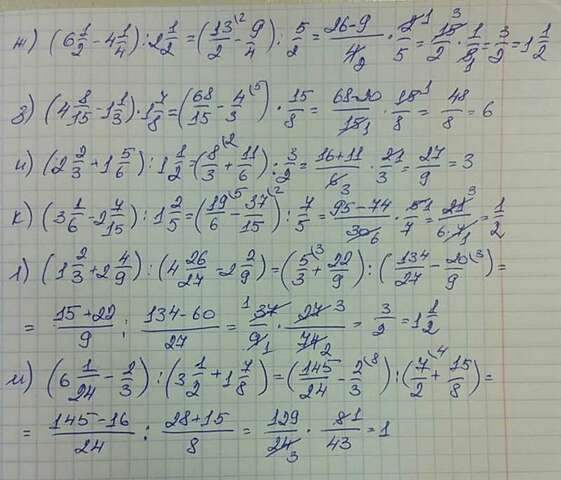 ж) (6 1/2 - 4 1/4) : 2 1/2 = (13/2 (2 - 9/4) : 5/2 = 26-9/4 2 · 2 1/5 = 15 3/2 · 1/9 1 = 3/2 = 1 1/2
з) (4 8/15 - 1 1/3) · 1 7/8 = (68/15 - 4/3 (5) · 15/8 = 68-20/15 1 · 15 1/8 = 48/8 = 6
и) (2 2/3 + 1 5/6) : 1 1/2 = (8/3 (2 + 11/6) : 3/2 = 16+11/6 3 · 2 1/3 = 27/9 = 3
к) (3 1/6 - 2 7/15) : 1 2/5 = (19/6 (5 - 37/15 (2) : 7/5 = 95-74/30 6 · 5 1/7 = 21 3/6·7 1 = 1/2
л) (1 2/3 + 2 4/9) : (4 26/27 - 2 2/9) = (5/3 (3 + 22/9) : (134/27 - 20/9 (3) =
= 15+22/9 : 134-60/27 = 1 37/9 1 · 27 3/74 2 = 3/2 = 1 1/2
м) (6 1/24 - 2/3) : (3 1/2 + 1 7/8) = (145/24 - 2/3 (8) : (7/2 (4 + 15/8) =
= 145-16/24 : 28+15/8 = 129/24 3 · 8 1/43 = 1